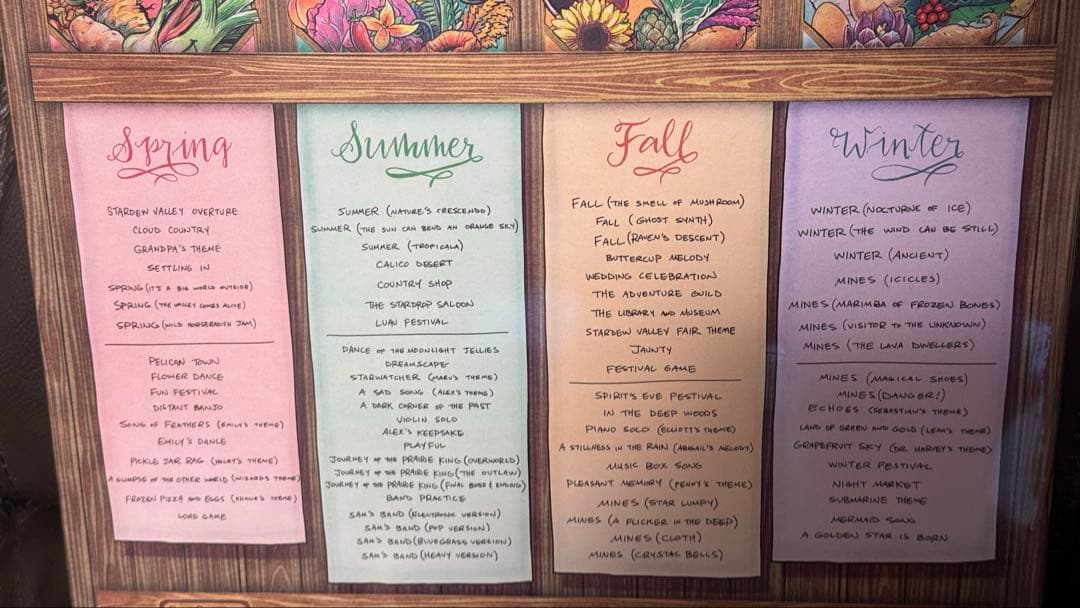 Spring
STARDEW VALLEY OVERTURE
CLOUD COUNTRY
GRANDPA'S THEME
SETTLING IN
SPRING (IT'S A BIG WORLD OUTSIDE)
SPRING (THE VALLEY COMES ALIVE)
SPRING (WILD HORSERADISH JAM)
PELICAN TOWN
FLOWER DANCE
FUN FESTIVAL
DISTANT BANJO
SONG OF FEATHERS (EMILY'S THEME)
EMILY'S DANCE
PICKLE JAR RAG (HALEY'S THEME)
A GLIMPSE OF THE OTHER WORLD (WIZARD'S THEME)
FROZEN PIZZA AND EGGS (SHANE'S THEME)
LOAD GAME
Summer
SUMMER (NATURE'S CRESCENDO)
SUMMER (THE SUN CAN BEND AN ORANGE SKY)
SUMMER (TROPICALA)
CALICO DESERT
COUNTRY SHOP
THE STARDROP SALOON
LUAU FESTIVAL
DANCE OF THE MOONLIGHT JELLIES
DREAMSCAPE
STARWATCHER (MARU'S THEME)
A SAD SONG (ALEX'S THEME)
A DARK CORNER OF THE PAST
VIOLIN SOLO
ALEX'S KEEPSAKE
PLAYFUL
JOURNEY OF THE PRAIRIE KING (OVERWORLD)
JOURNEY OF THE PRAIRIE KING (THE OUTLAW)
JOURNEY OF THE PRAIRIE KING (FINAL BOSS & ENDING)
BAND PRACTICE
SAM'S BAND (ELECTRONIC VERSION)
SAM'S BAND (POP VERSION)
SAM'S BAND (BLUEGRASS VERSION)
SAM'S BAND (HEAVY VERSION)
Fall
FALL (THE SMELL OF MUSHROOM)
FALL (GHOST SYNTH)
FALL (RAVEN'S DESCENT)
BUTTERCUP MELODY
WEDDING CELEBRATION
THE ADVENTURE GUILD
THE LIBRARY AND MUSEUM
STARDEW VALLEY FAIR THEME
JAUNTY
FESTIVAL GAME
SPIRIT'S EVE FESTIVAL
IN THE DEEP WOODS
PIANO SOLO (ELLIOTT'S THEME)
A STILLNESS IN THE RAIN (ABIGAIL'S MELODY)
MUSIC BOX SONG
PLEASANT MEMORY (PENNY'S THEME)
MINES (STAR LUMPY)
MINES (A FLICKER IN THE DEEP)
MINES (CLOTH)
MINES (CRYSTAL BELLS)
Winter
WINTER (NOCTURNE OF ICE)
WINTER (THE WIND CAN BE STILL)
WINTER (ANCIENT)
MINES (ICICLES)
MINES (MARIMBA OF FROZEN BONES)
MINES (VISITOR TO THE UNKNOWN)
MINES (THE LAVA DWELLERS)
MINES (MAGICAL SHOES)
MINES (DANGER!)
ECHOES (SEBASTIAN'S THEME)
LAND OF GREEN AND GOLD (LEAH'S THEME)
GRAPEFRUIT SKY (DR. HARVEY'S THEME)
WINTER FESTIVAL
NIGHT MARKET
SUBMARINE THEME
MERMAID SONG
A GOLDEN STAR IS BORN